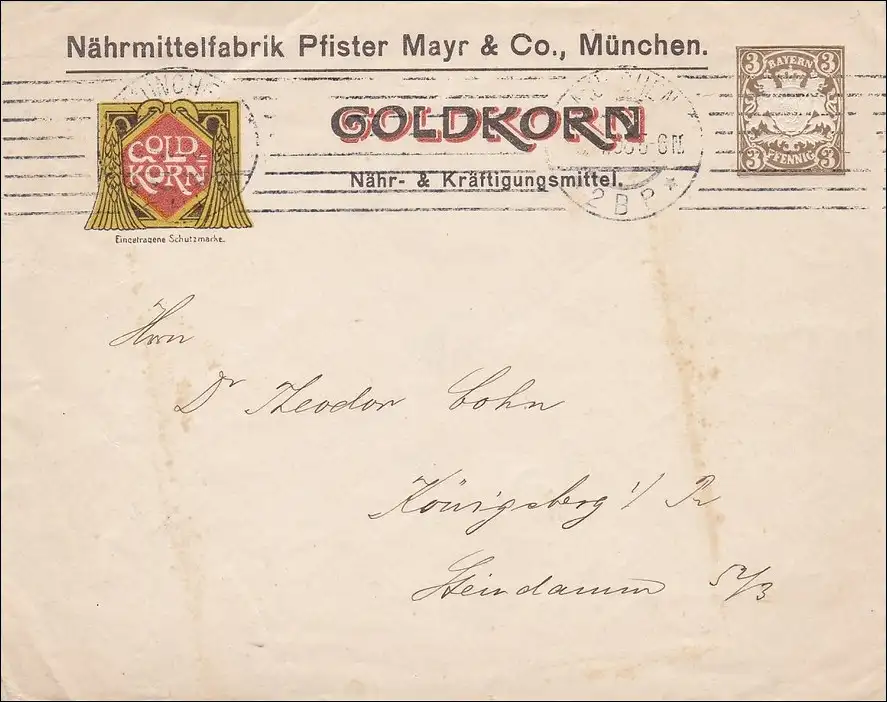 Nährmittelfabrik Pfister Mayr & Co., München.
3 BAYERN 3
3 PFENNIG 3
MÜNCHEN
GOLDKORN
Nähr- & Kräftigungsmittel.
5-6 N.
2 B P *
GOLD=
KORN
Eingetragene Schutzmarke.
Hrn
Dr Theodor Cohn
Königsberg i/ Pr
Steindamm